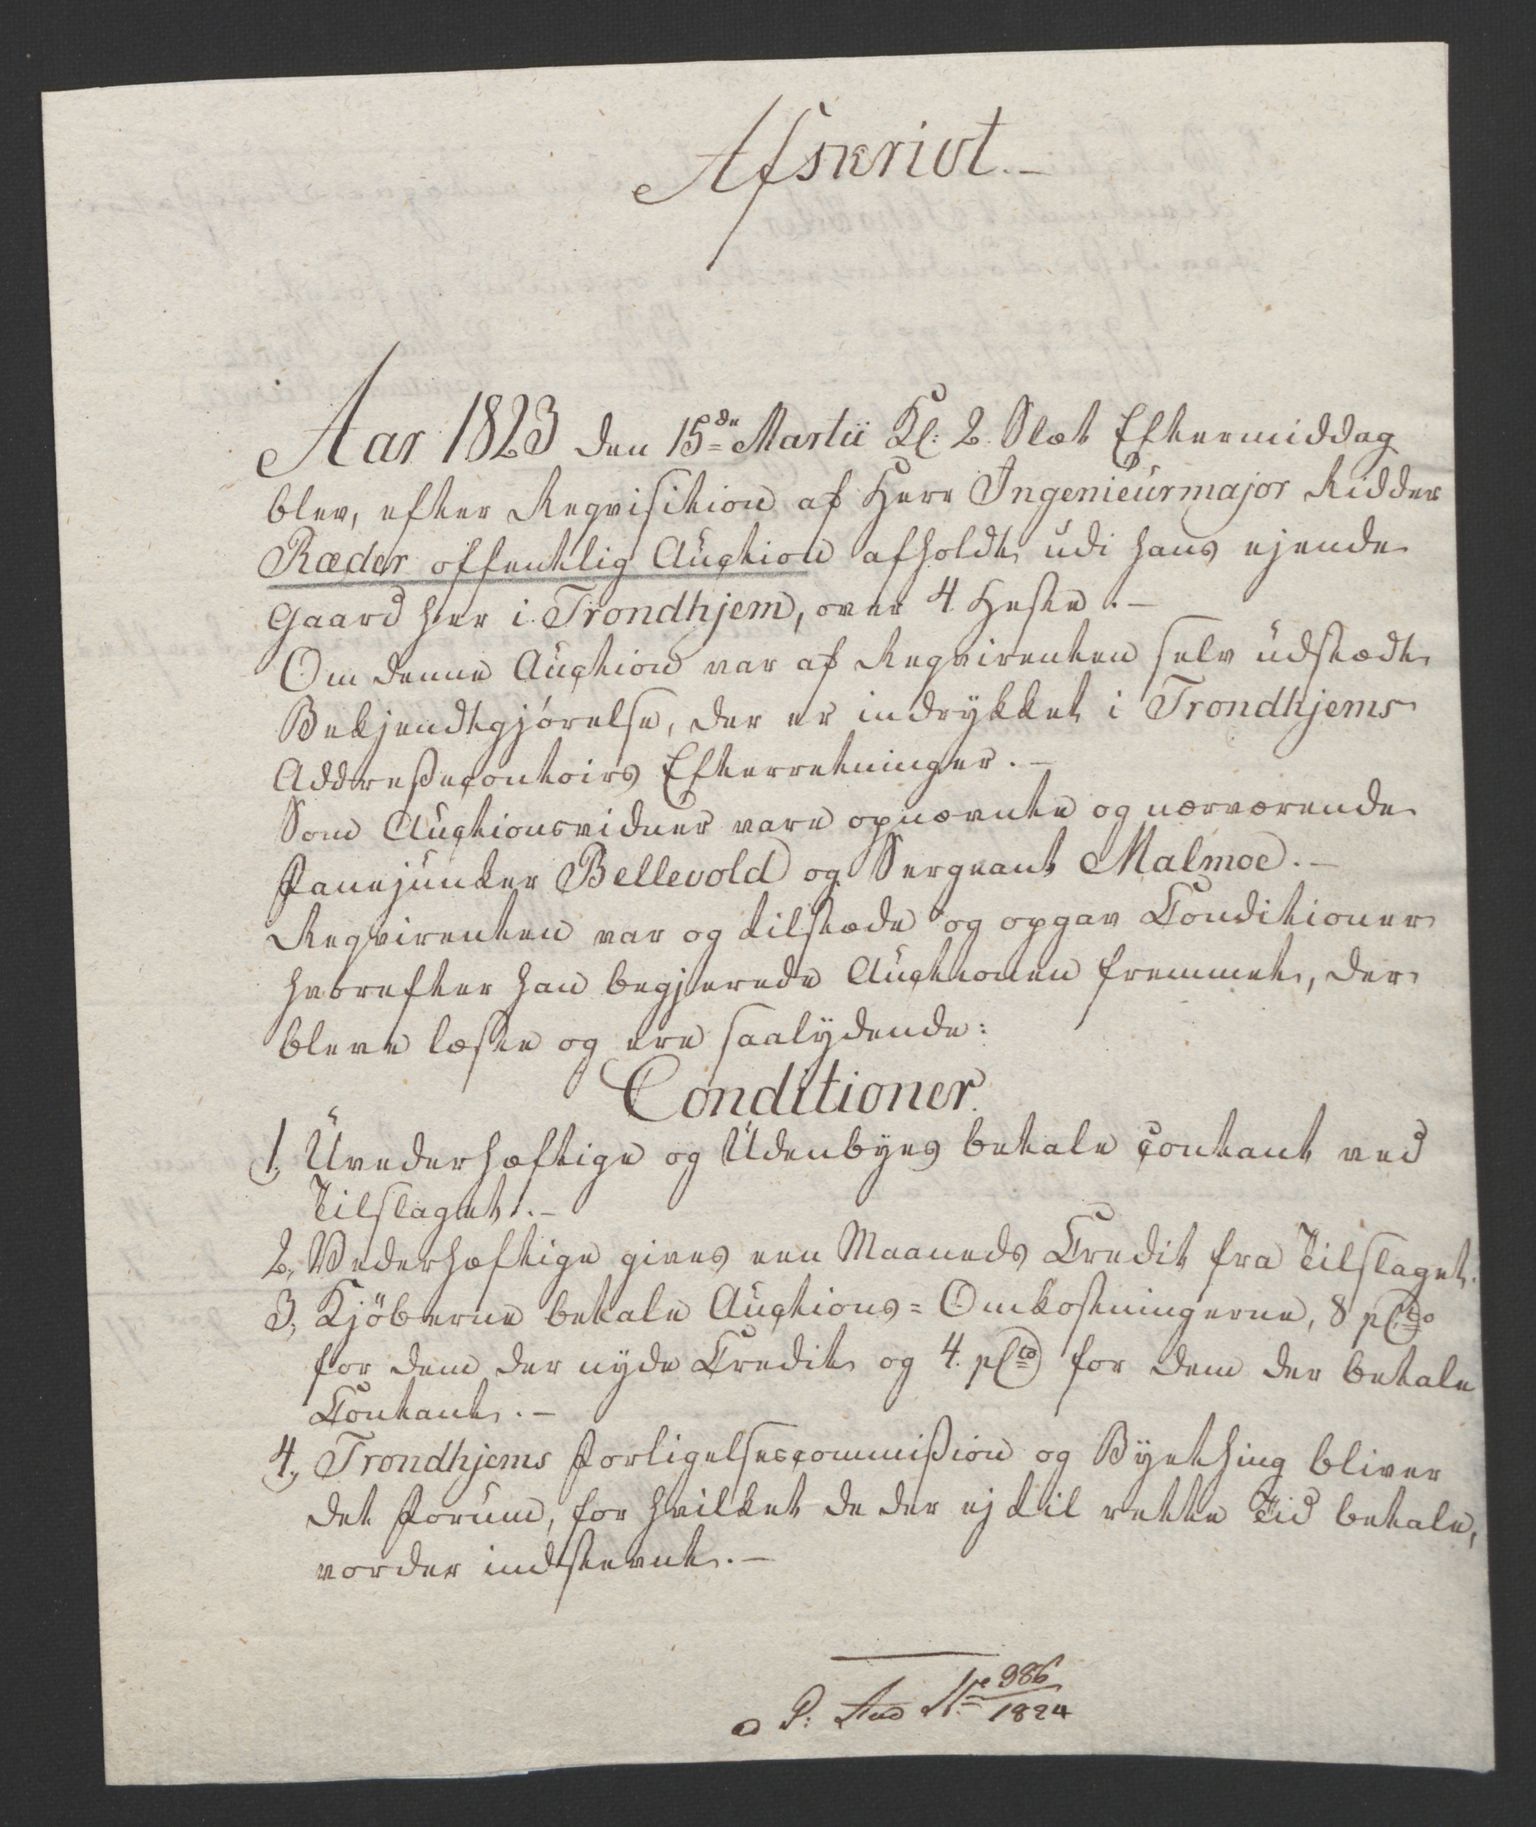 Afskrivt.–
Aar 1823 den 15de Martii Kl: 2 Slæt Eftermiddag
blev, efter Reqvisition af Herr Ingenieurmajor Ridder
Ræder offentlig Auction afholdt udi hans ejende
Gaard her i Trondhjem, over 4 Heste.–
Om denne Auction var af Reqvirenten selv udstædt
Bekjendtgjørelse, der er indrykket i Trondhjems
Addreßecontoirs Efterretninger.–
Som Auctionsvidner vare opnævnte og nærværende
Fanejunker Bellevold og Sergeant Malmoe.–
Reqvirenten var og tilstæde og opgav Conditioner
hvorefter han begjerede Auctionen fremmet, der
bleve læste og ere saalydende:
Conditioner.
1, Uvederhæftige og Udenbyes betale contant ved
Tilslaget.–
2, Vederhæftige gives een Maaneds Credit fra Tilslaget.
3, Kjöberne betale Auctions=Omkostningerne, 8 pCto
for dem der nyde Credit og 4. pCto for dem der betale
Contant.–
4, Trondhjems Forligelsescommißion og Byething bliver
det Forum, for hvilket de der ej til rette Tid betale,
vorder indstevnt.–
P: Aud No 986/1824